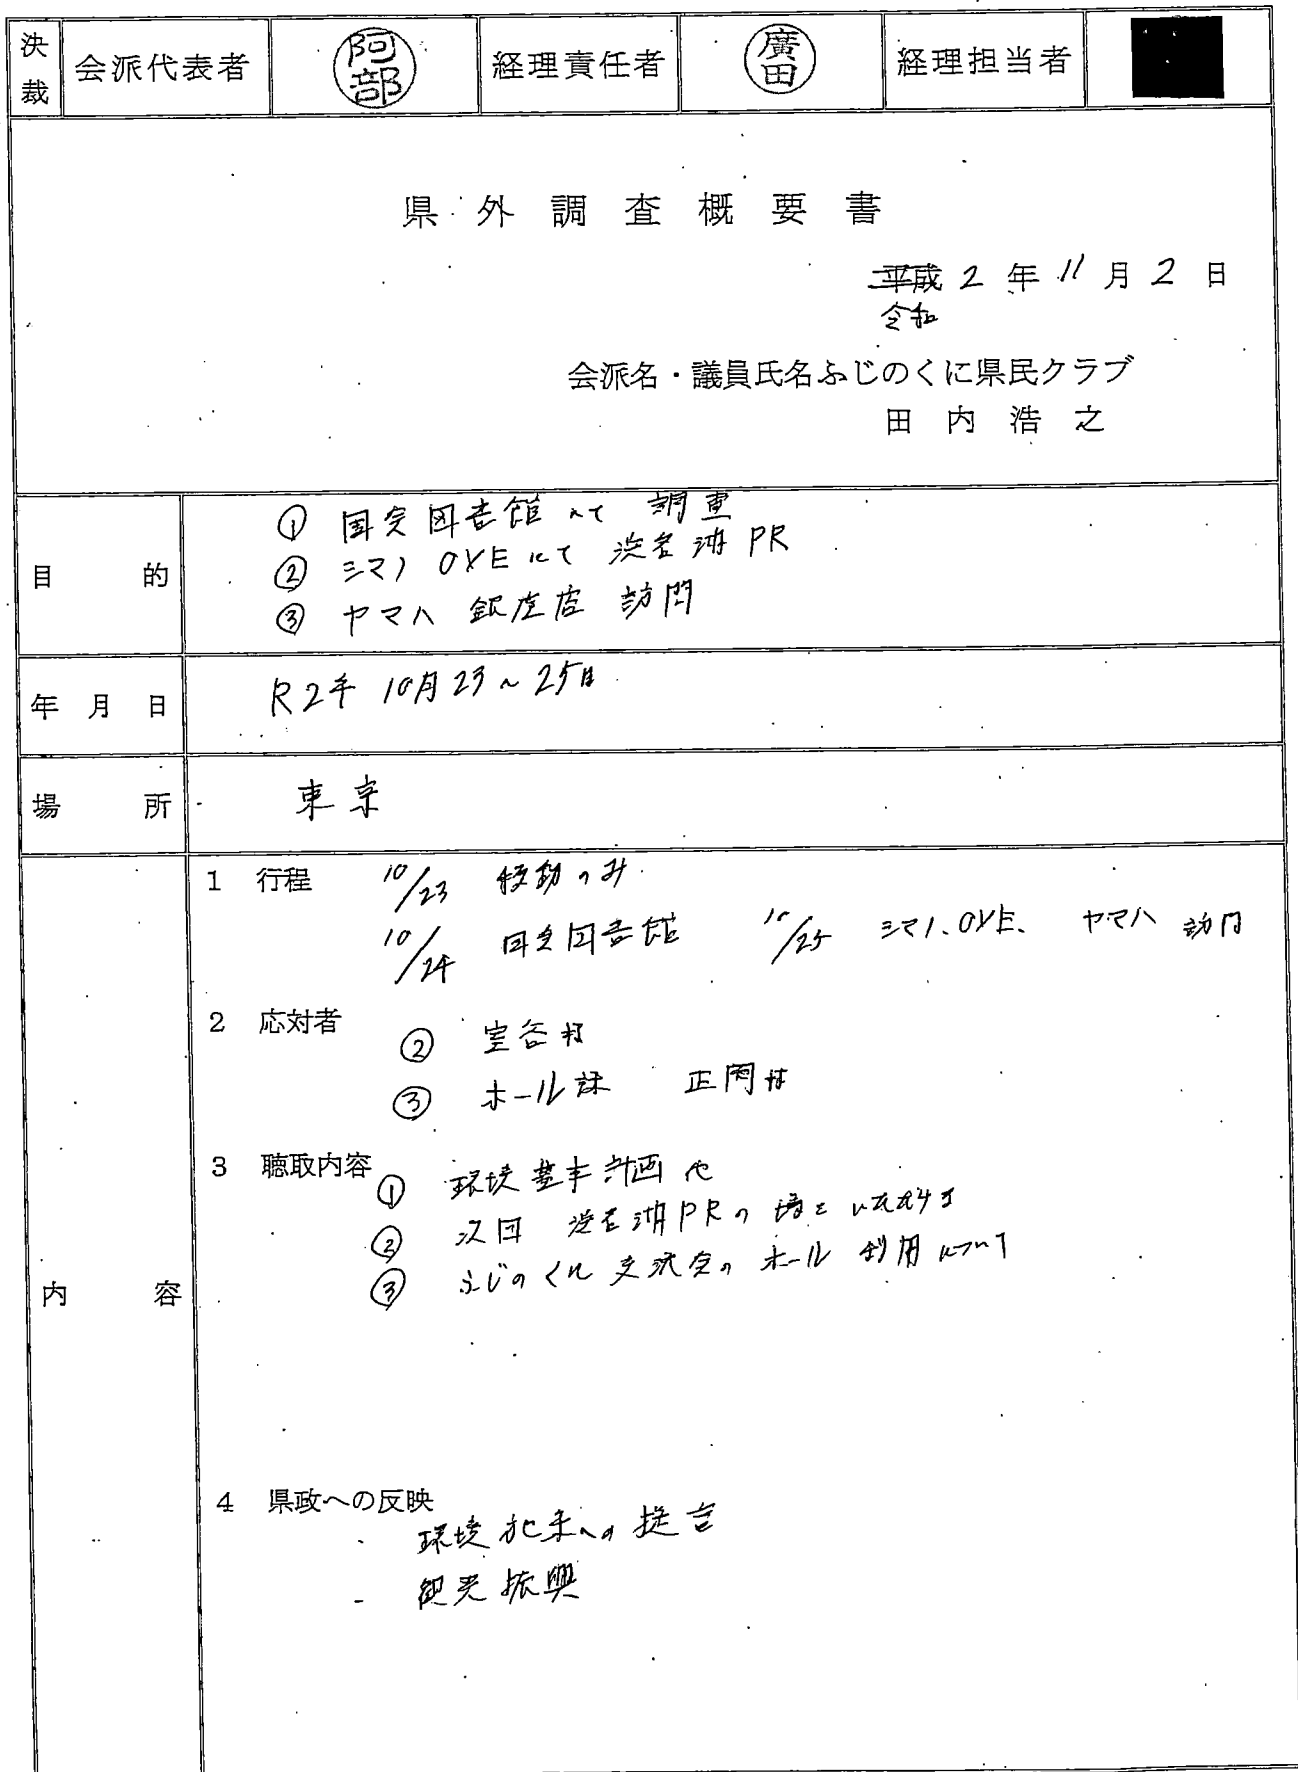 決裁 会派代表者 阿部 経理責任者 廣田 経理担当者
県外調査概要書
平成 2 年 11 月 2 日
令和
会派名・議員氏名ふじのくに県民クラブ
田内浩之
目的
① 国会図書館にて 調査
② シマノ OVE にて 浜名湖 PR
③ ヤマハ 銀座店 訪問
年月日 R2年 10月23~25日
場所 東京
内容
1 行程 10/23 移動のみ
10/24 国会図書館 10/25 シマノ、OVE、 ヤマハ 訪問
2 応対者
② 室谷様
③ ホール課 正岡様
3 聴取内容
① 環境基本計画 他
② 次回 浜名湖PRの場を いただける
③ ふじのくに交流会の ホール 利用について
4 県政への反映
- 環境施策への提言
- 観光振興